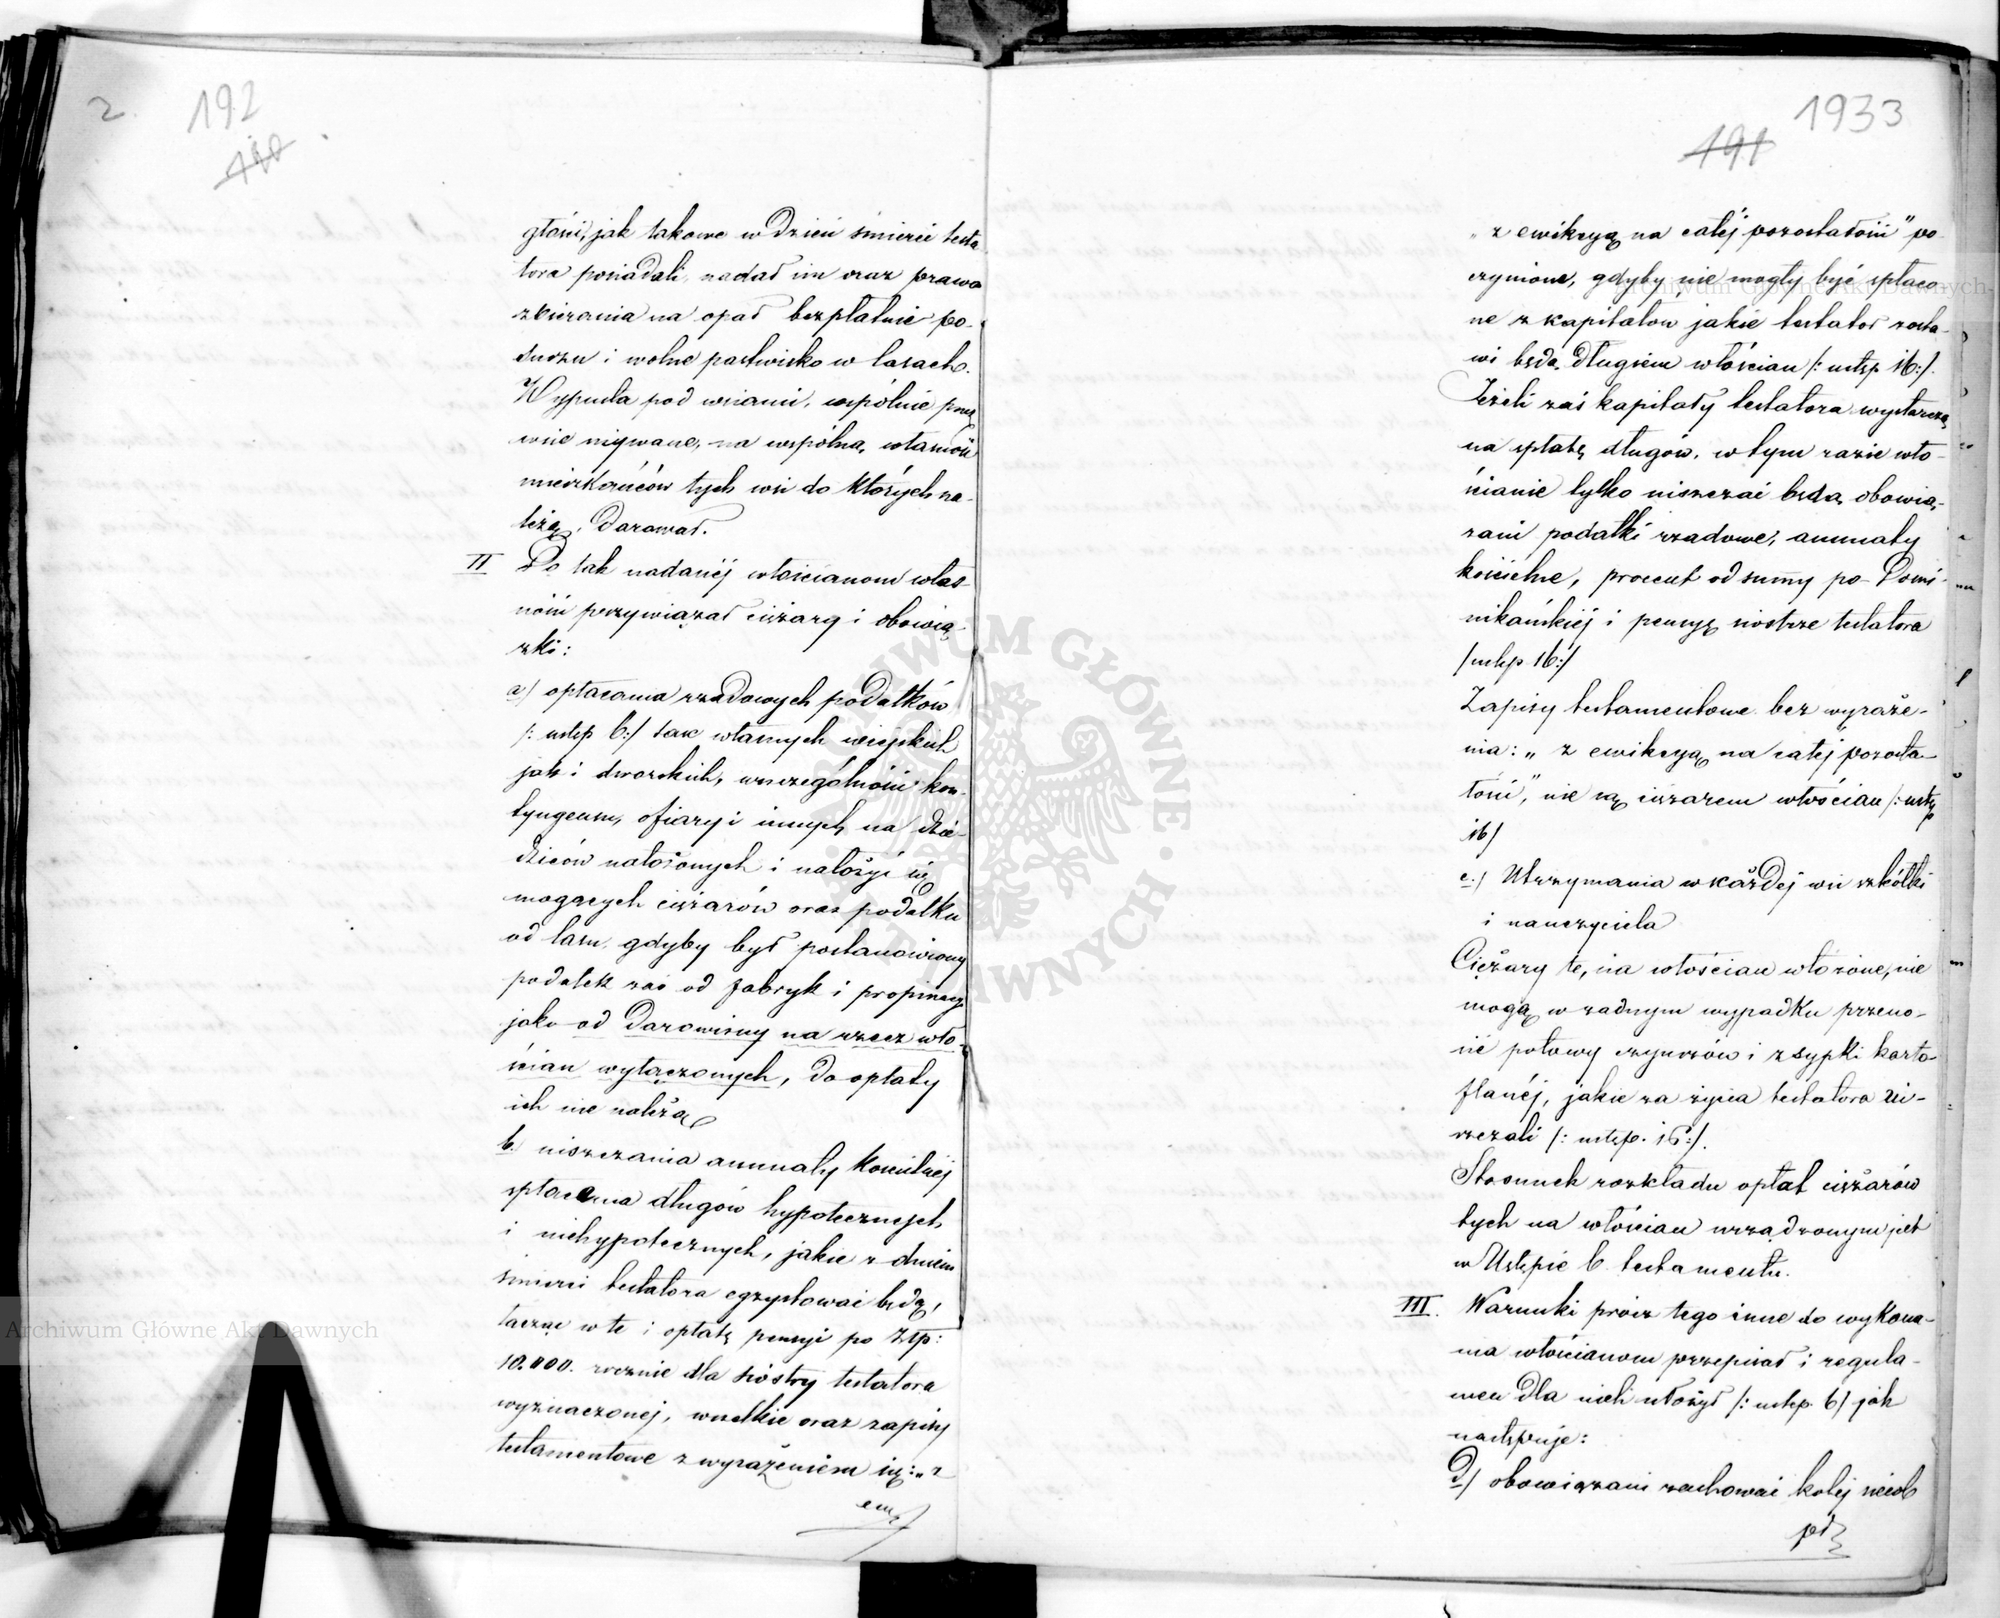 2
192
190
głości, jak takowe w dzień śmierci testa
tora posiadali, nadał im oraz prawo
zbierania na opał bezpłatnie po-
suszu i wolne pastwisko w lasach.
Wypusta pod wsiami, wspólnie
używane, na wspólną własność
mieszkańców tych wsi do których na-
leżą, darował.
II Do tak nadanéj włościanom włas-
ności przywiązał ciężary i obowią-
zki:
a/ opłacania rządowych podatków
/: ustęp 6:/ tak własnych wiejskich
jak i dworskich, w szczególności kon-
tyngensu, ofiary i innych na dzie-
dziców nałożonych i nałożyć się
mogących ciężarów oraz podatku
od lasu, gdyby był postanowiony
podatek zaś od fabryk i propinacyi
jako od darowizny na rzecz wło-
ścian wyłączonych, do opłaty
ich nie należą
b. uiszczania annuaty kościelnéj
spłacenia długów hypotecznych
i niehypotecznych, jakie z dniem
śmierci testatora egzystować będą,
łącząc w te i opłatę pensyi po Złp:
10.000. rocznie dla siostry testatora
wyznaczonej, wszelkie oraz zapisy
testamentowe z wyrażeniem się: „z
ewi
1933
191
„z ewikcyą na całéj pozostałości" po-
czynione, gdyby nie mogły być spłaco-
ne z kapitałów jakie testator zosta-
wi będą długiem włościan /: ustęp 16:/.
Jeżeli zaś kapitały testatora wystarczą
na spłatę długów, w tym razie wło-
ścianie tylko uiszczać będą obowią-
zani podatki rządowe, annuaty
kościelne, procent od summy po-Domi-
nikańskiéj i pensyę siostrze testatora
/ustęp 16:/
Zapisy testamentowe bez wyraże-
nia: „z ewikcyą na całéj pozosta-
łości", nie są ciężarem włościan /: ustęp
16/
c./ Utrzymania w każdej wsi szkółki
i nauczyciela
Ciężary te, na włościan włożone, nie
mogą w żadnym wypadku przeno-
sić połowy czynszów i zsypki karto-
flanéj, jakie za życia testatora ui-
szczali /: ustęp. 16:/.
Stosunek rozkładu opłat ciężarów
tych na włościan urządzonym jest
w Ustępie 6 testamentu.
III. Warunki prócz tego inne do wykona-
nia włościanom przepisał i regula-
men dla nich ułożył /: ustęp. 6/ jak
następuje:
d/ obowiązani zachować kolej
Archiwum Główne Akt Dawnych
Archiwum Główne Akt Dawnych
ARCHIWUM GŁÓWNE AKT DAWNYCH